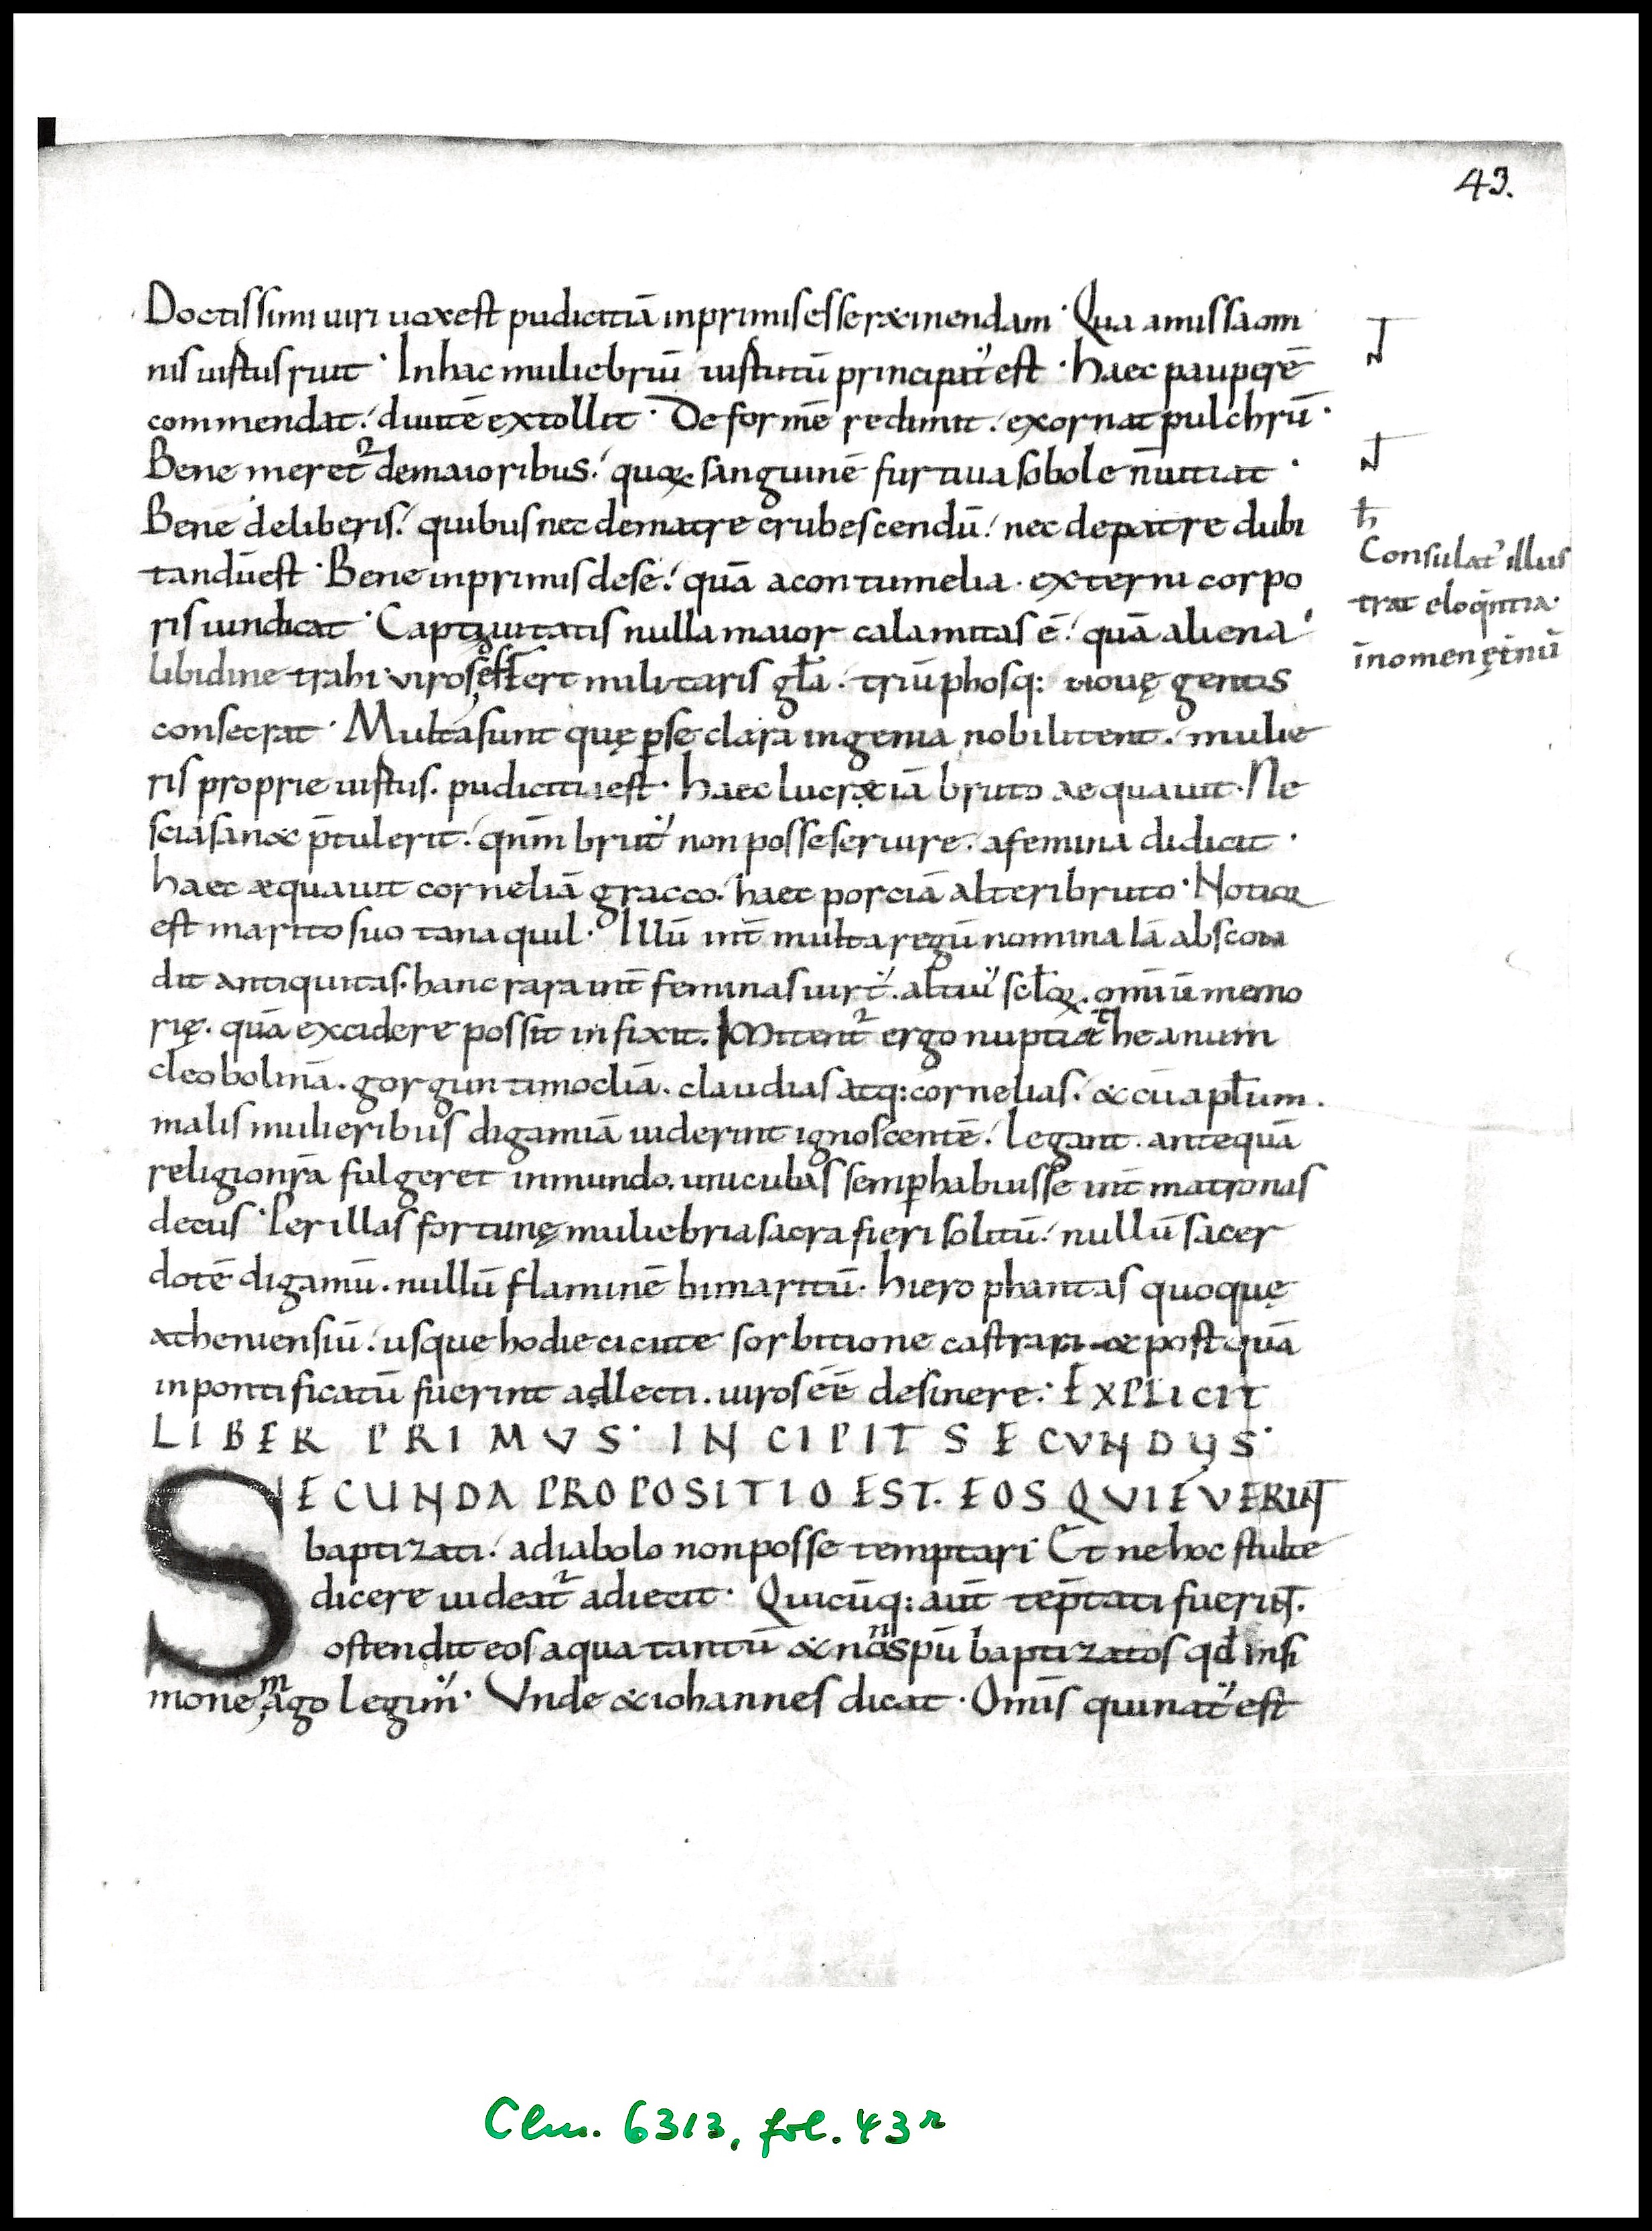 43.
Doctissimi uiri uox est pudicitiā inprimis esse retinendam · Qua amissa om
nis uirtus ruit · In hac muliebriū uirtutū principat' est · haec pauperē
commendat. diuitē extollit · Deformē redimit. exornat pulchrū ·
Bene meret² de maioribus. quorum sanguinē furtiua sobole n̄ uitiat ·
Bene deliberis. quibus nec de matre erubescendū. nec de patre dubi
tandū est · Bene inprimis de se. quā a contumelia · externi corpo
ris uindicat · Captiuitatis nulla maior calamitas ē. quā aliena
libidine trahi · viros effert militaris gl̄a · triūphosq: nouę gentis
consecrat · Multa sunt quę p̱ se clara ingenia nobilitent. mulie
ris proprie uirtus · pudicitia est · haec lucretiā bruto aequauit · Ne
scias an & p̄tulerit. qn̄m brut' non posse seruire. a femina didicit ·
haec æquauit corneliā gracco. haec porciā alteri bruto · Notior
est marito suo tanaquil · Illū int̄ multa regū nomina iā abscon
dit antiquitas. hanc rara int̄ feminas uirt'. altiu' sclor. omīū memo
rię. quā excidere possit infixit. Imitent² ergo nuptiæ theanum
cleobolinā. gorgun timocliā. claudias atq: cornelias. & cū apłum.
malis mulieribus digamiā uiderint ignoscentē. legant. antequā
religio nr̄a fulgeret in mundo. unicubas semp̱ habuisse int̄ matronas
decus · Per illas fortunę muliebria sacra fieri solitū. nullū sacer
dotē digamū. nullū flaminē bimaritū. hierophantas quoquę
atheniensiū. usque hodie cicute sorbitione castrari & postquā
in pontificatū fuerint adlecti. uiros ēē desinere. EXPLICIT
LIBER PRIMVS · INCIPIT SECVNDUS ·
SECUNDA PROPOSITIO EST. EOS QVI FVERINT
baptizati. a diabolo non posse temptari · Et ne hoc stulte
dicere uideat² adiecit · Quicūq: aut̄ tēptati fuerint.
ostendit eos aqua tantū & non spū baptizatos qđ in si
mone mago legim' · Vnde & iohannes dicat · Omīs qui nat' est
Consulat' illus
trat eloq̄ntia ·
in omen ęt̄nū
Clm. 6313, fol. 43r